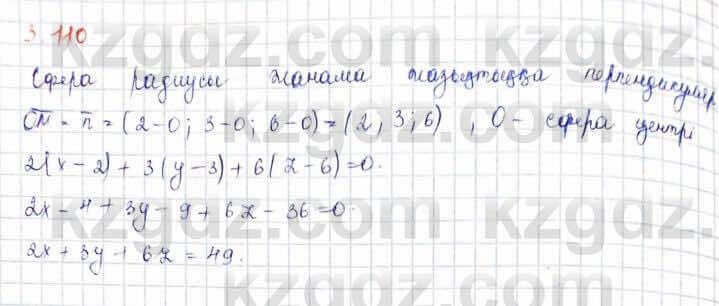 3.110
Сфера радиусы жанама жазықтыққа перпендикуляр
ON = n̅ = (2-0; 3-0; 6-0) = (2; 3; 6), O - сфера центрі
2(x-2) + 3(y-3) + 6(z-6) = 0.
2x - 4 + 3y - 9 + 6z - 36 = 0.
2x + 3y + 6z = 49.
kzgdz.com